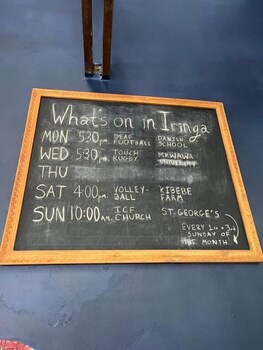 What's on in Iringa
MON 5:30pm DEAF FOOTBALL DANISH SCHOOL
WED 5:30pm TOUCH RUGBY MKWAWA UNIVERSITY
THU
SAT 4:00pm VOLLEY-BALL KIBEBE FARM
SUN 10:00am ICF CHURCH ST. GEORGE'S
EVERY 1st + 3rd
SUNDAY OF
THE MONTH